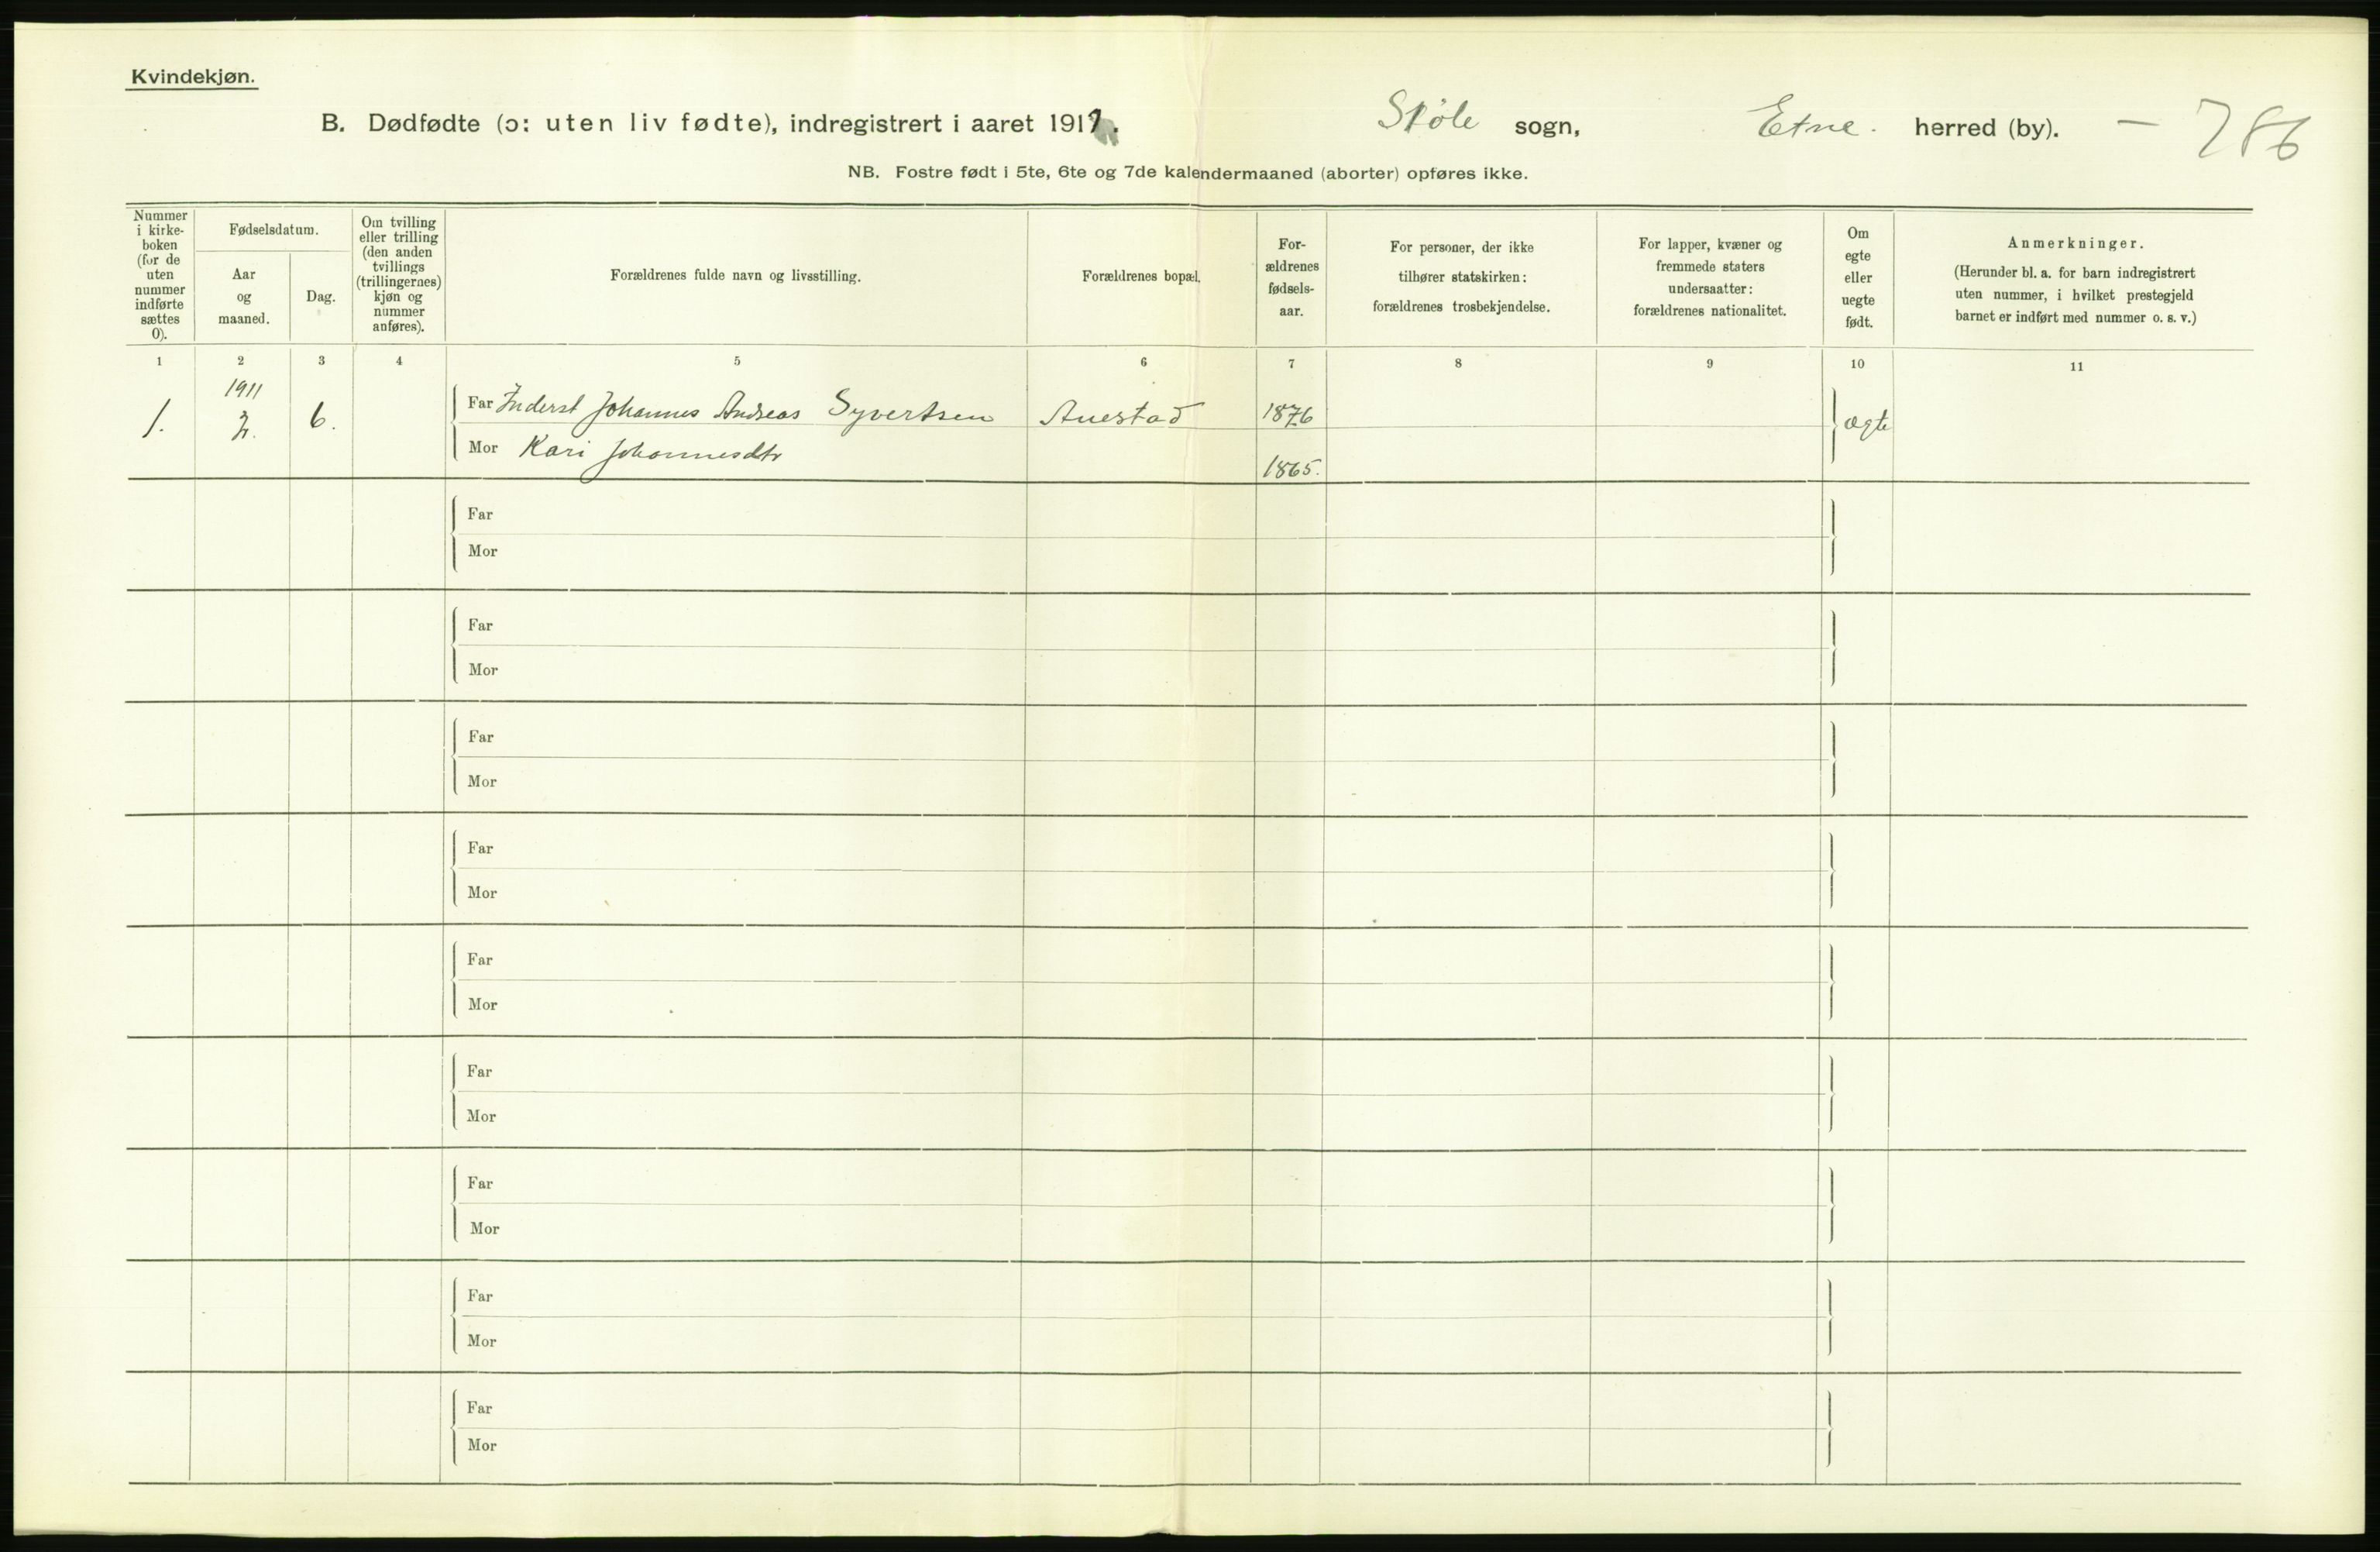 Kvindekjøn.
B. Dødfødte (ɔ: uten liv fødte), indregistrert i aaret 1911. Støle sogn, Etne. herred (by). — 786
NB. Fostre født i 5te, 6te og 7de kalendermaaned (aborter) opføres ikke.
Nummer
i kirke-
boken
(for de
uten
nummer
indførte
sættes
0).
Fødselsdatum.
Aar
og
maaned.
Dag.
Om tvilling
eller trilling
(den anden
tvillings
(trillingernes)
kjøn og
nummer
anføres).
Forældrenes fulde navn og livsstilling.
Forældrenes bopæl.
For-
ældrenes
fødsels-
aar.
For personer, der ikke
tilhører statskirken:
forældrenes trosbekjendelse.
For lapper, kvæner og
fremmede staters
undersaatter:
forældrenes nationalitet.
Om
egte
eller
uegte
født.
Anmerkninger.
(Herunder bl. a. for barn indregistrert
uten nummer, i hvilket prestegjeld
barnet er indført med nummer o. s. v.)
1 2 3 4 5 6 7 8 9 10 11
1911
1. 6. Far Inderst Johannes Andreas Syvertsen Auestad 1876 ægte
Mor Kari Johannesdtr 1865.
Far
Mor
Far
Mor
Far
Mor
Far
Mor
Far
Mor
Far
Mor
Far
Mor
Far
Mor
Far
Mor